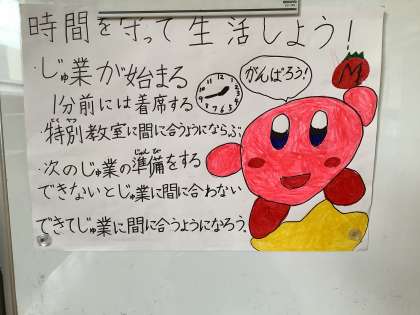 時間を守って生活しよう!
・じゅ業が始まる
1分前には着席する
・特別教室に間に合うようにならぶ
・次のじゅ業の準備をする
できないとじゅ業に間に合わない
できてじゅ業に間に合うようになろう。
がんばろう!
M